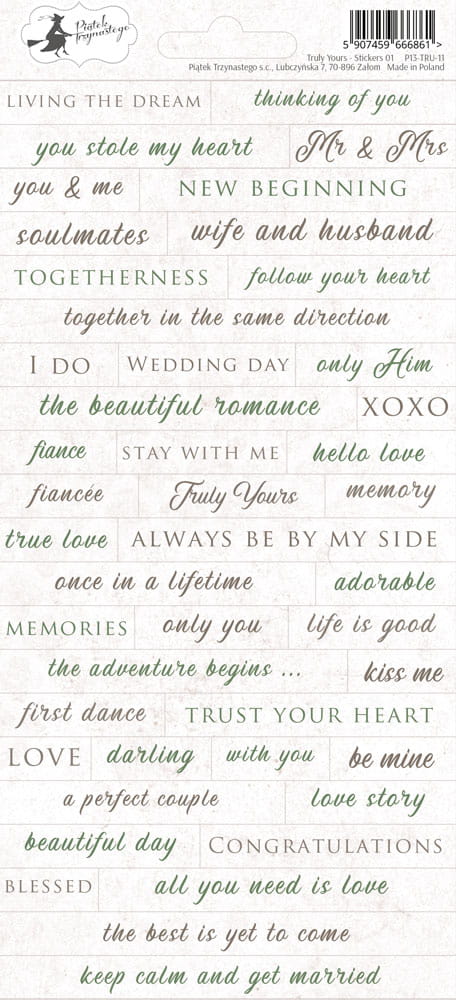 Piątek
Trzynastego
5 907459 666861 >
Truly Yours - Stickers 01 P13-TRU-11
Piątek Trzynastego s.c., Lubczyńska 7, 70-896 Załom Made in Poland
LIVING THE DREAM thinking of you
you stole my heart Mr & Mrs
you & me NEW BEGINNING
soulmates wife and husband
TOGETHERNESS follow your heart
together in the same direction
I DO WEDDING DAY only Him
the beautiful romance XOXO
fiance STAY WITH ME hello love
fiancée Truly Yours memory
true love ALWAYS BE BY MY SIDE
once in a lifetime adorable
MEMORIES only you life is good
the adventure begins ... kiss me
first dance TRUST YOUR HEART
LOVE darling with you be mine
a perfect couple love story
beautiful day CONGRATULATIONS
BLESSED all you need is love
the best is yet to come
keep calm and get married